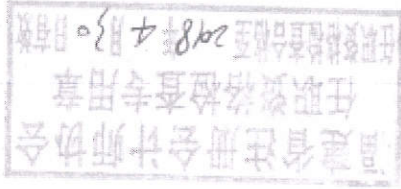 福建省注册会计师协会
任职资格检查专用章
任职资格检查 2018 年 4 月 30 日